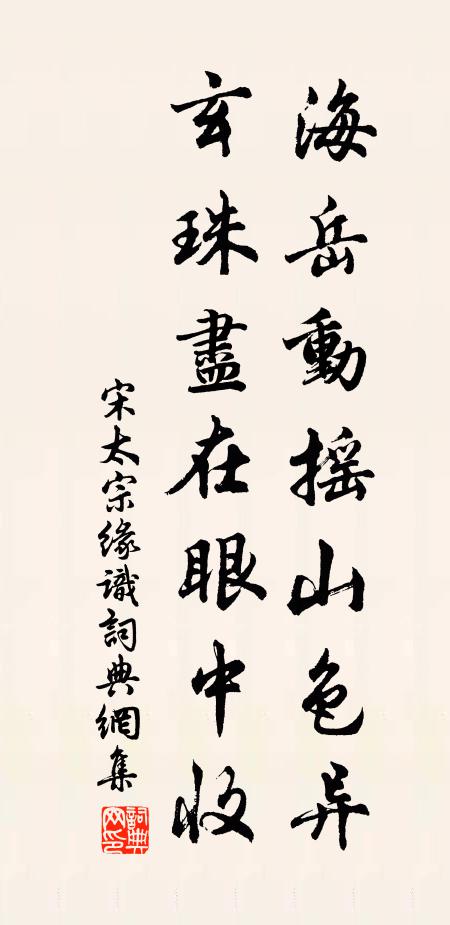 海岳動摇山色异
玄珠盡在眼中收
宋太宗缘識詞典網集
詞典網印